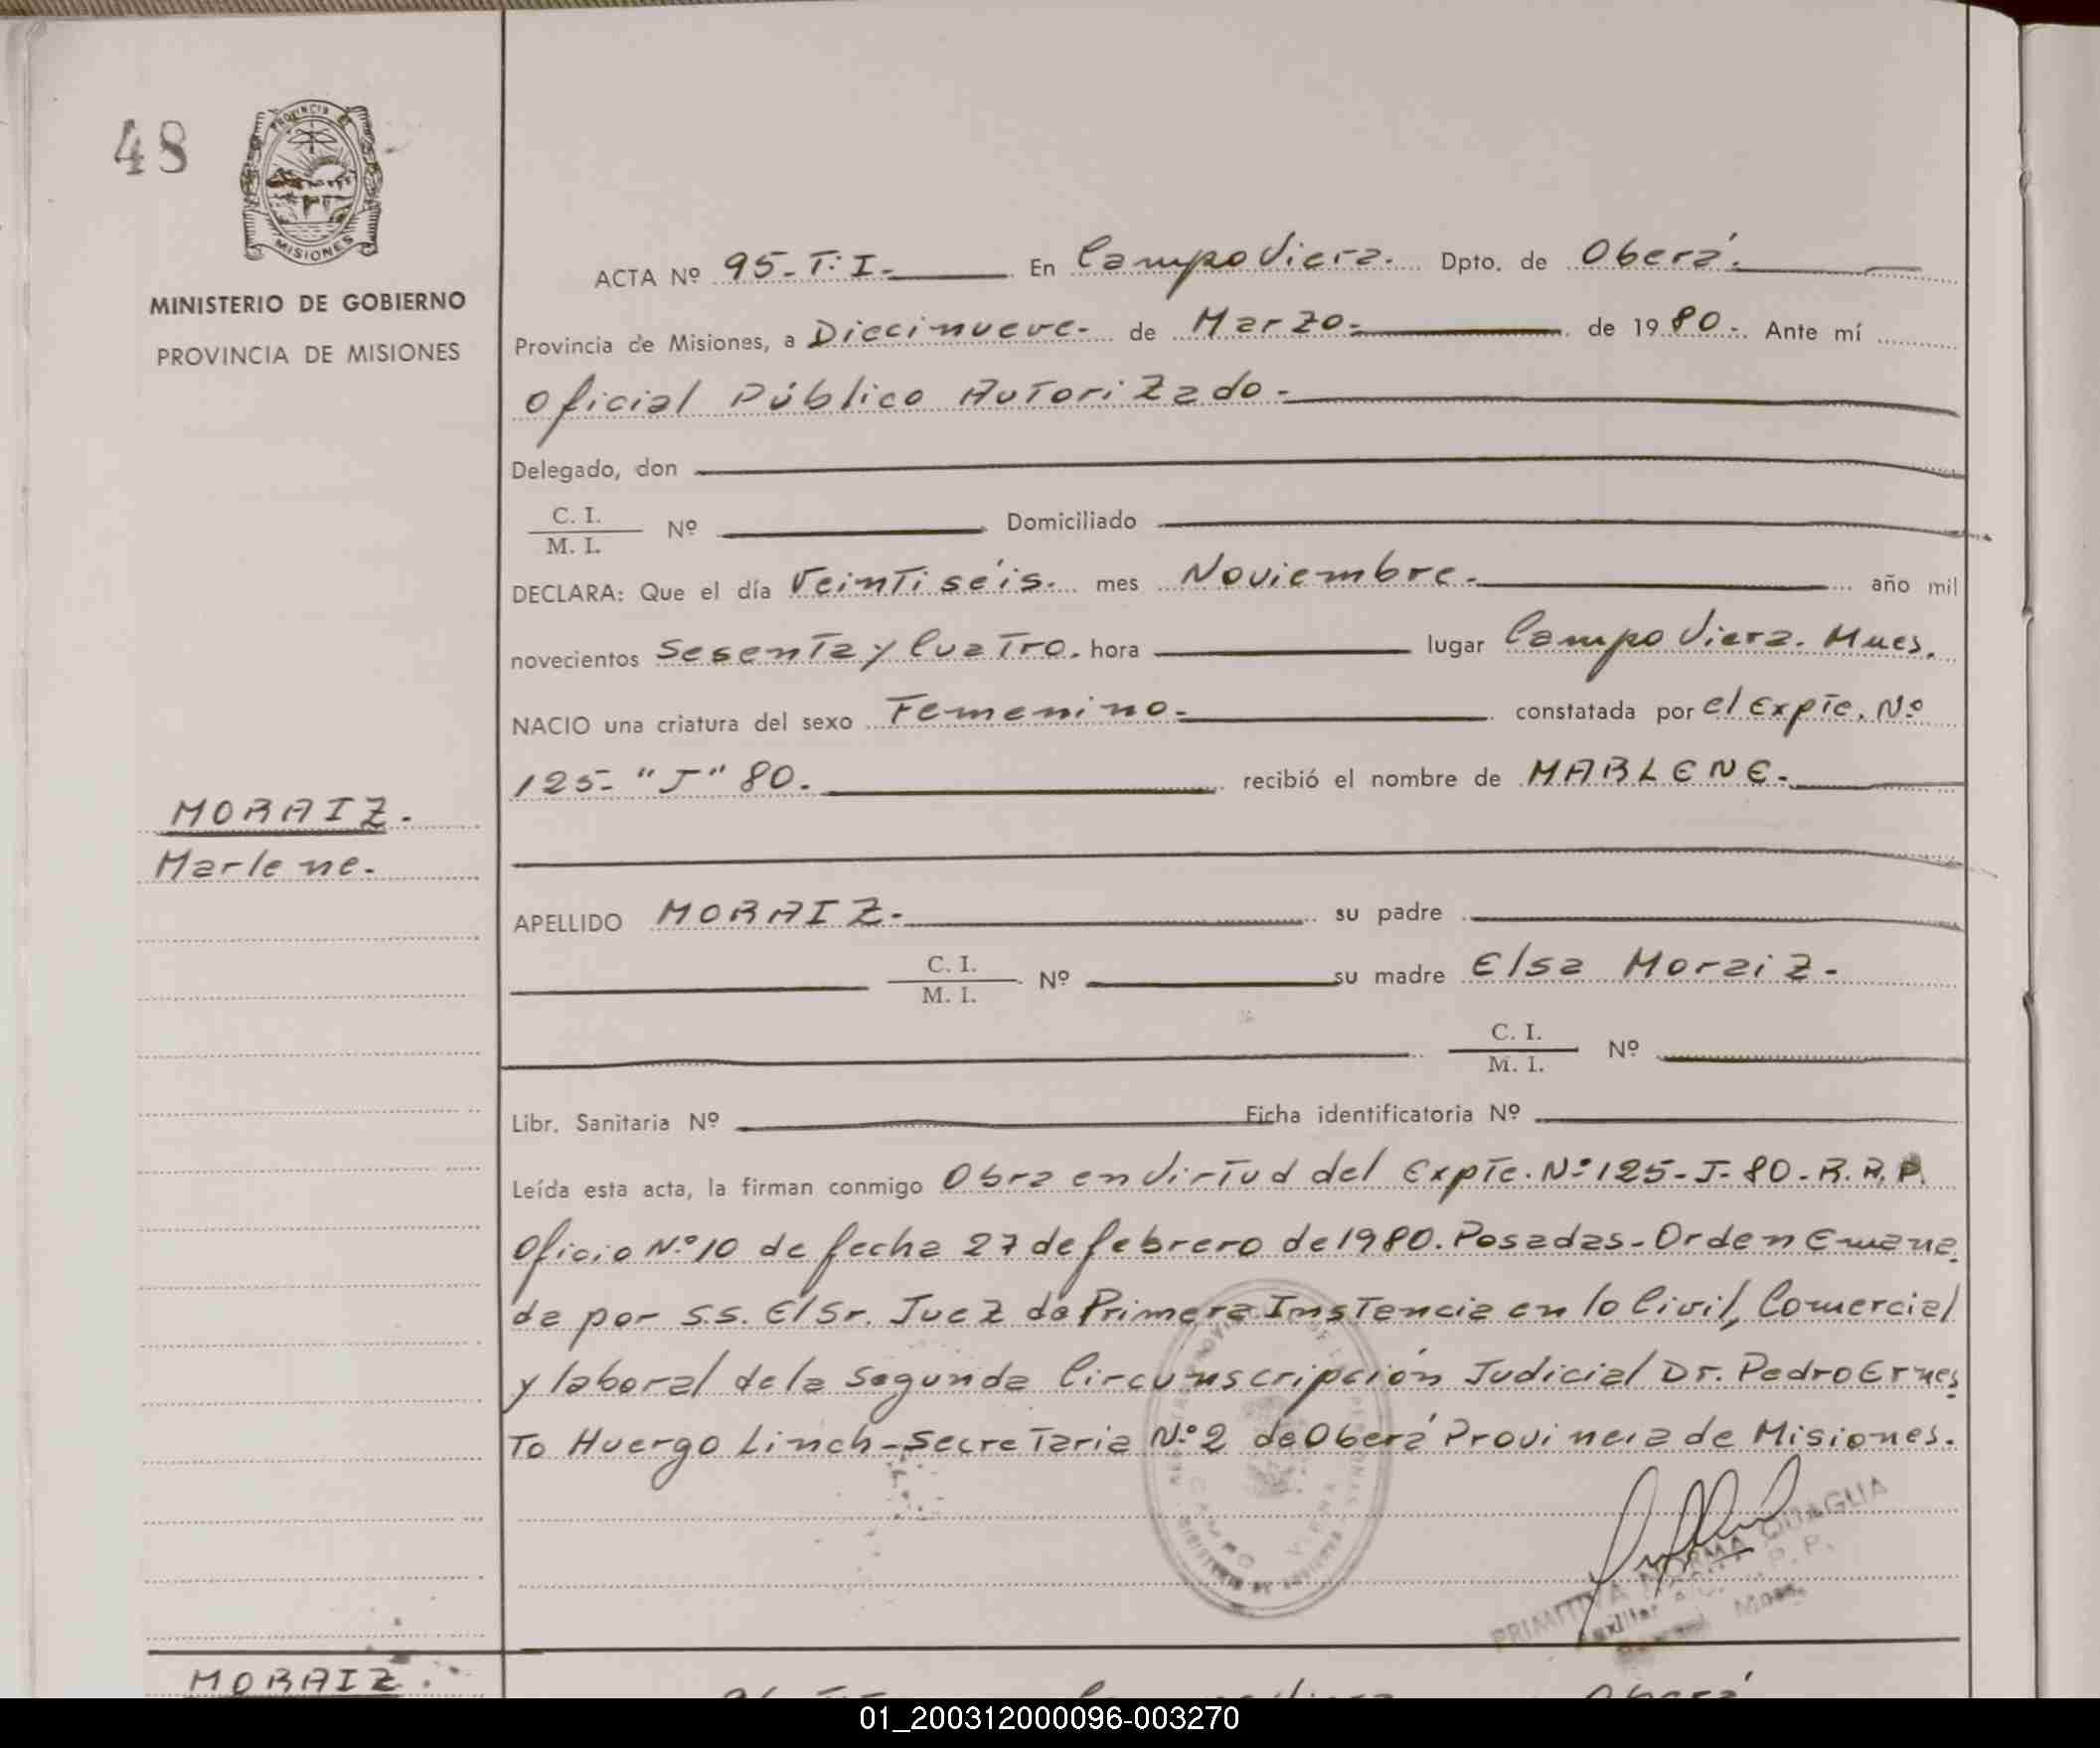 48
PROVINCIA DE
MISIONES
MINISTERIO DE GOBIERNO
PROVINCIA DE MISIONES
ACTA Nº 95-T:I- En Campo Viera. Dpto. de Oberá.
Provincia de Misiones, a Diecinueve- de Marzo- de 1980-. Ante mí
Oficial Público Autorizado-
Delegado, don
C. I.
M. I. Nº Domiciliado
DECLARA: Que el día Veintiséis. mes Noviembre. año mil
novecientos Sesenta y Cuatro. hora lugar Campo Viera. Mnes.
NACIO una criatura del sexo Femenino- constatada por el Expte. Nº
125- "J" 80. recibió el nombre de MARLENE-
MORAIZ.
Marlene.
APELLIDO MORAIZ- su padre
C. I.
M. I. Nº su madre Elsa Moraiz-
C. I.
M. I. Nº
Libr. Sanitaria Nº Ficha identificatoria Nº
Leída esta acta, la firman conmigo Obra en Virtud del Expte. Nº 125-J-80-R.R.P.
Oficio Nº 10 de fecha 27 de febrero de 1980. Posadas-Orden Emana
da por S.S. El Sr. Juez de Primera Instancia en lo Civil, Comercial
y laboral de la Segunda Circunscripción Judicial Dr. Pedro Ernes
To Huergo Linch-Secretaria Nº 2 de Oberá Provincia de Misiones.
CAMPO VIERA
PRIMITIVA NORMA QUAGLIA
MORAIZ.
01_200312000096-003270